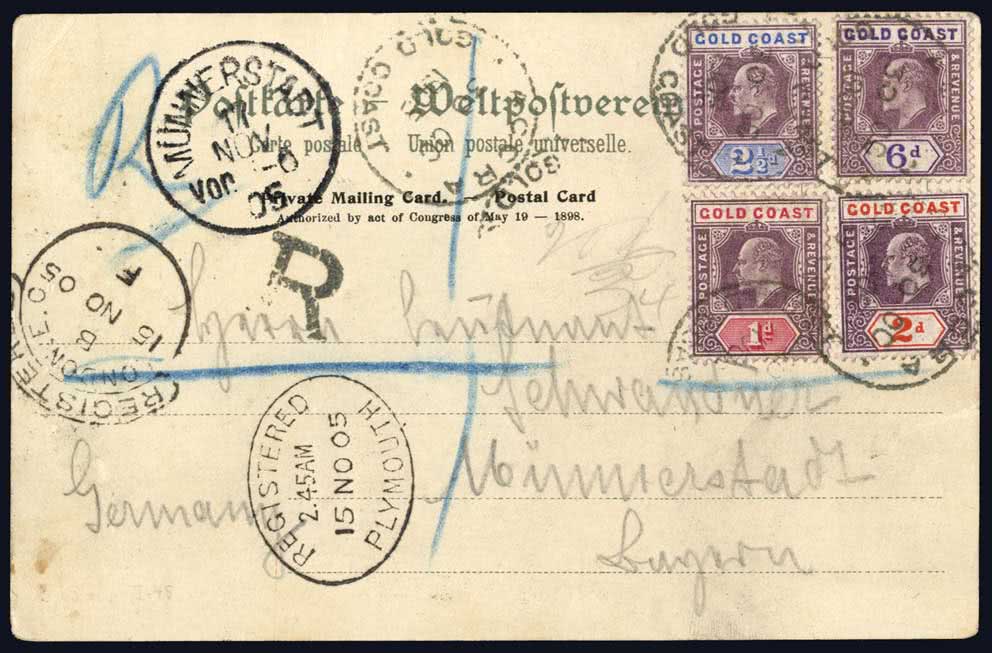 Postkarte Weltpostverein
Carte postale Union postale universelle.
Private Mailing Card. Postal Card
Authorized by act of Congress of May 19 — 1898.
MÜNNERSTADT
17
NOV
VOR
05
GOLD COAST
ACCRA
GOLD COAST
POSTAGE & REVENUE
2½d
GOLD COAST
POSTAGE & REVENUE
6d
GOLD COAST
POSTAGE & REVENUE
1d
GOLD COAST
POSTAGE & REVENUE
2d
R
R
REGISTERED
LONDON.E.C
B
15 NO 05
F
Herrn Leutnant
Schwandner
Münnerstadt
Germany
Bayern
REGISTERED
2.45AM
15 NO 05
PLYMOUTH